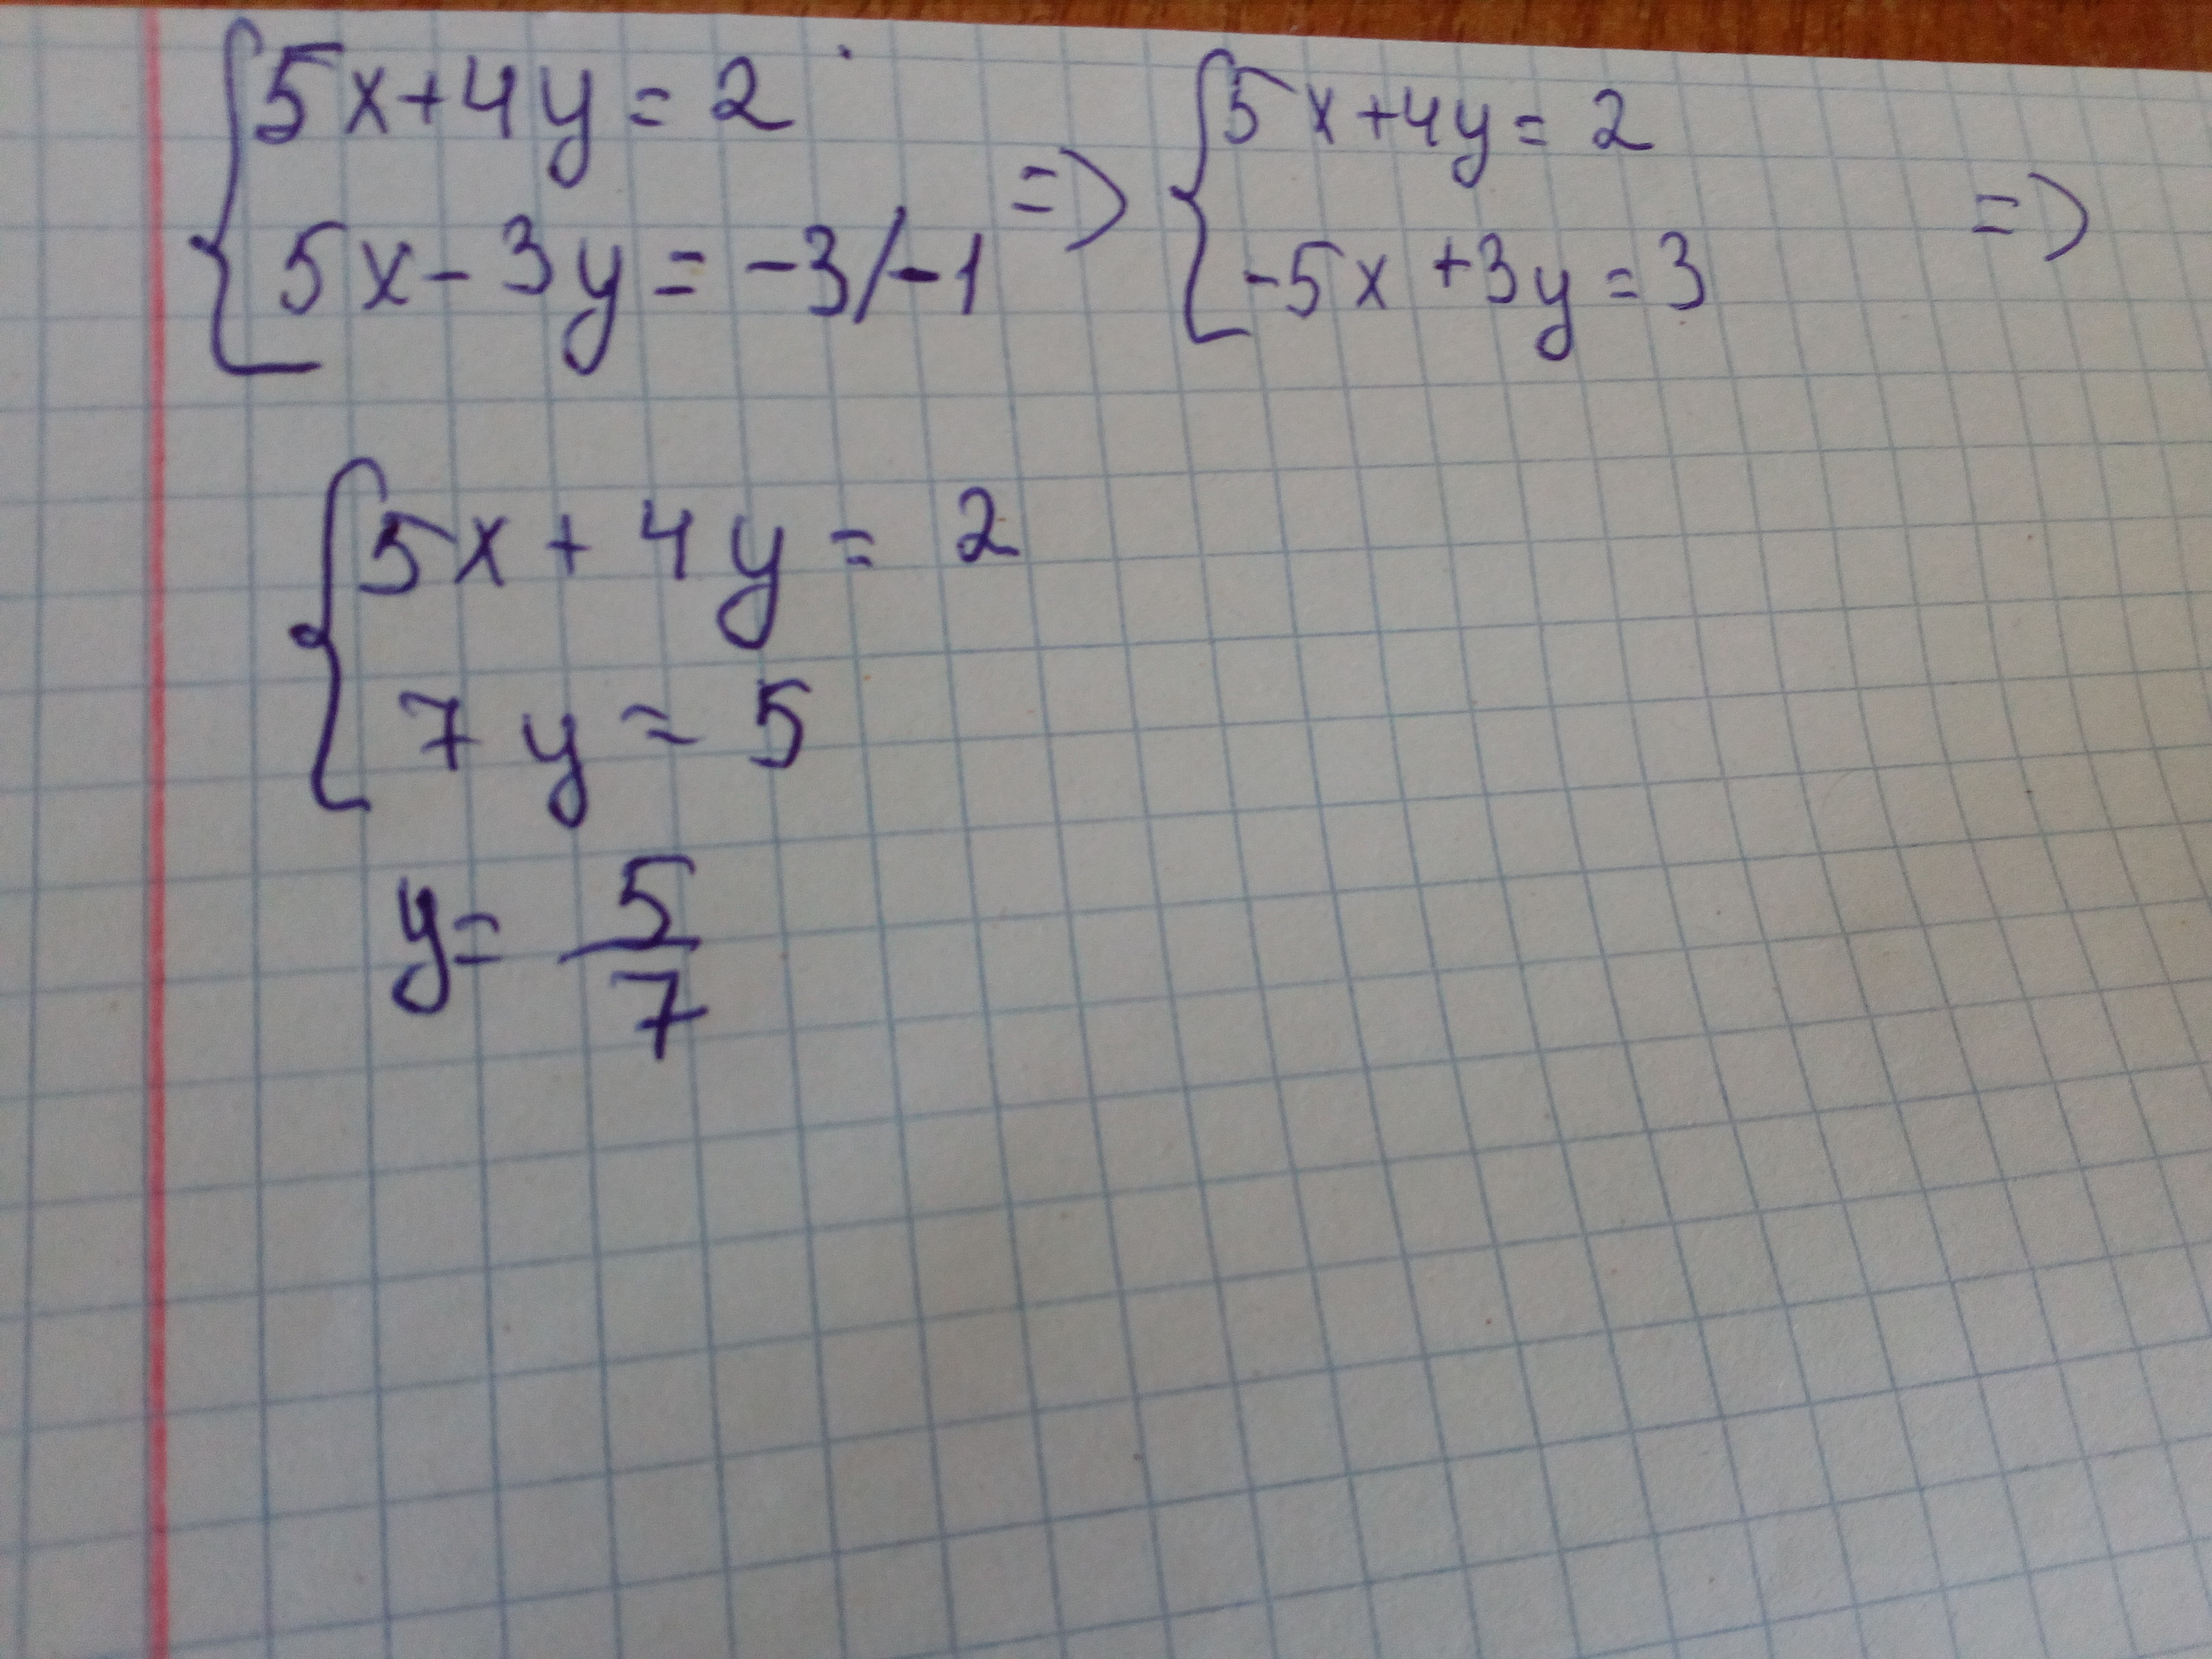 5x+4y=2 => 5x+4y=2 =>
5x-3y=-3/-1 -5x+3y=3
5x+4y=2
7y=5
y=5/7